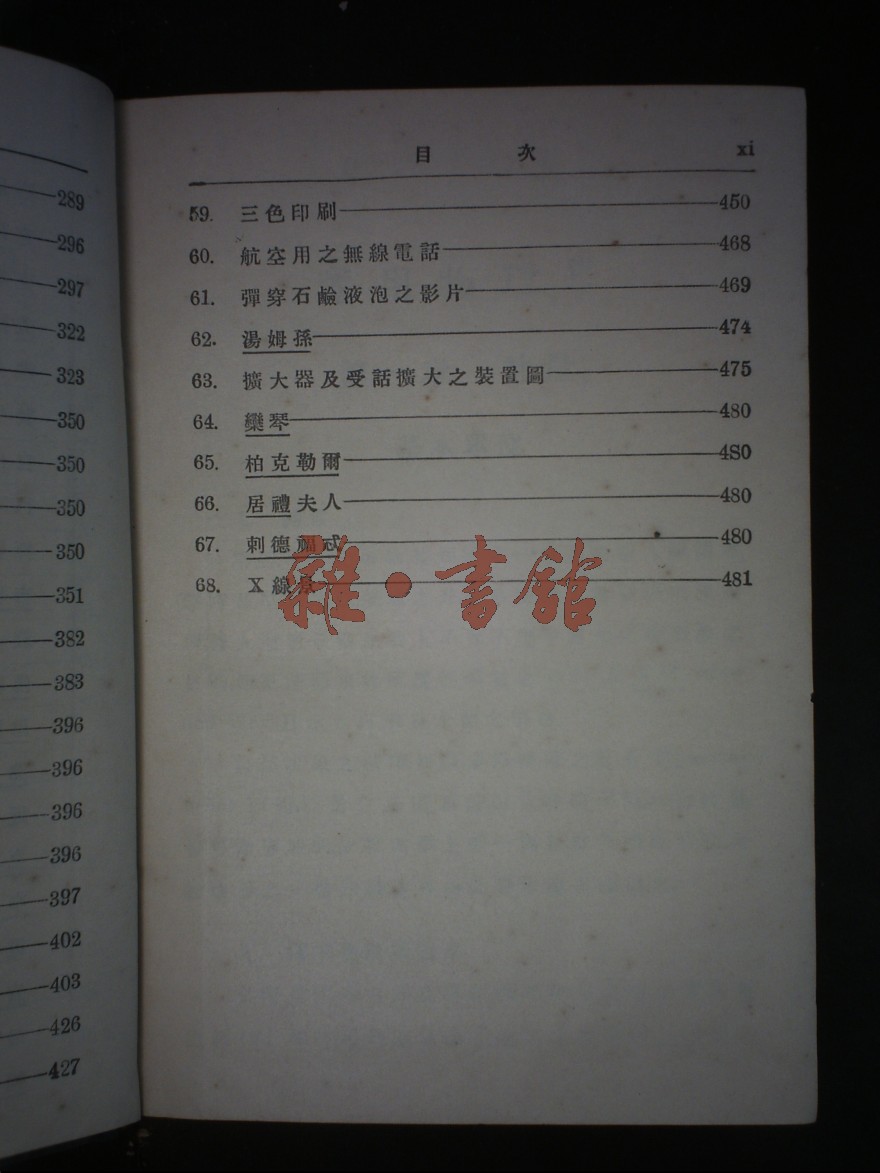 289
296
297
322
323
350
350
350
350
351
382
383
396
396
396
396
397
402
403
426
427
目 次 xi
59. 三色印刷 450
60. 航空用之無線電話 468
61. 彈穿石鹼液泡之影片 469
62. 湯姆孫 474
63. 擴大器及受話擴大之裝置圖 475
64. 欒琴 480
65. 柏克勒爾 480
66. 居禮夫人 480
67. 刺德福忒 480
68. X線 481
雜·書館